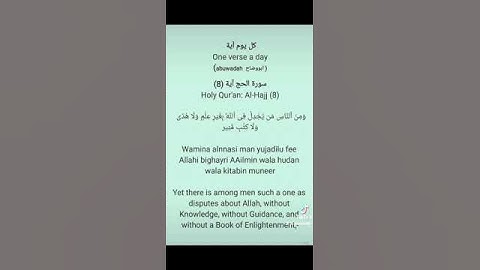 كل يوم آية
One verse a day
(abuwadah ابووضاح)
سورة الحج آية (8)
Holy Qur'an: Al-Hajj (8)
وَمِنَ ٱلنَّاسِ مَن يُجَٰدِلُ فِى ٱللَّهِ بِغَيْرِ عِلْمٍ وَلَا هُدًى
وَلَا كِتَٰبٍ مُّنِيرٍ
Wamina alnnasi man yujadilu fee
Allahi bighayri AAilmin wala hudan
wala kitabin muneer
Yet there is among men such a one as
disputes about Allah, without
Knowledge, without Guidance, and
without a Book of Enlightenment,-